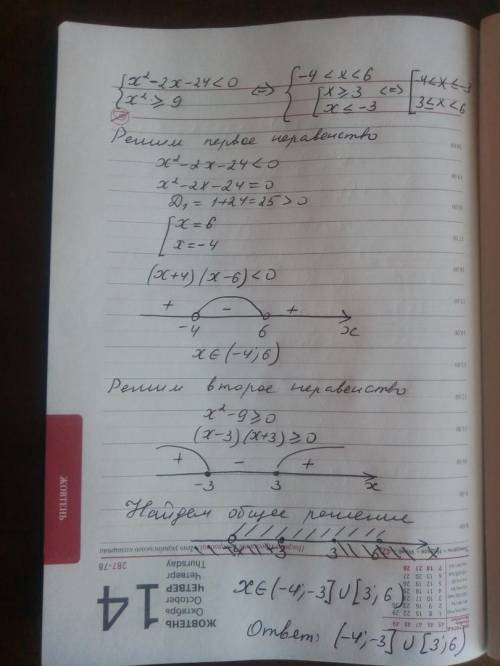 {x²-2x-24<0 {x²≥9 <=> {-4<x<6 [x≥3 x≤-3 <=> [-4<x≤-3 3≤x<6
Решим первое неравенство
x²-2x-24<0
x²-2x-24=0
D₁ = 1+24=25>0
[x=6
x=-4
(x+4)(x-6)<0
+ - +
-4 6 x
x∈(-4;6)
Решим второе неравенство
x²-9≥0
(x-3)(x+3)≥0
+ - +
-3 3 x
Найдем общее решение
-4 -3 3 6 x
x∈(-4;-3]∪[3;6)
Ответ: (-4;-3]∪[3;6)
ЖОВТЕНЬ
287-78
Thursday
Четверг
ЧЕТВЕР
October
Октябрь
ЖОВТЕНЬ
14